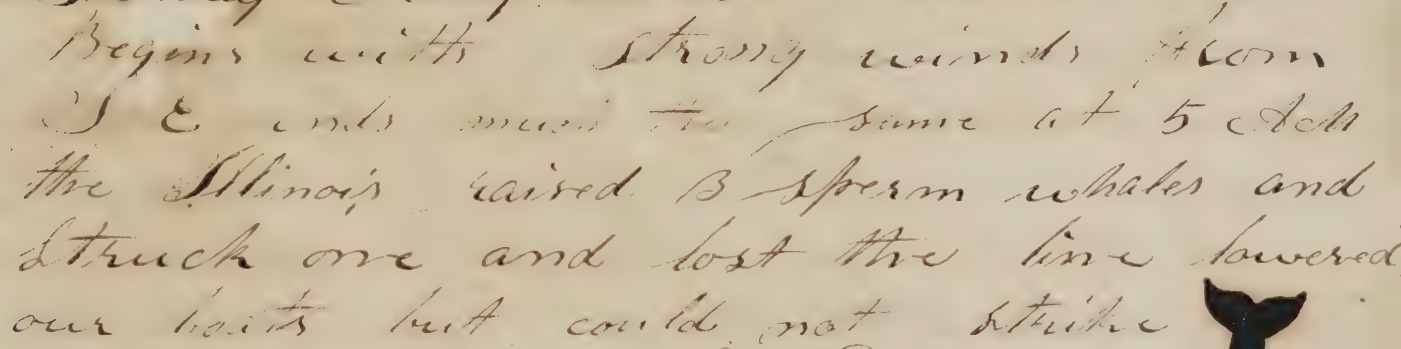 Begins with strong winds from
S E ends much the same at 5 AM
the Illinois raised 3 sperm whales and
Struck one and lost the line lowered
our boats but could not strike